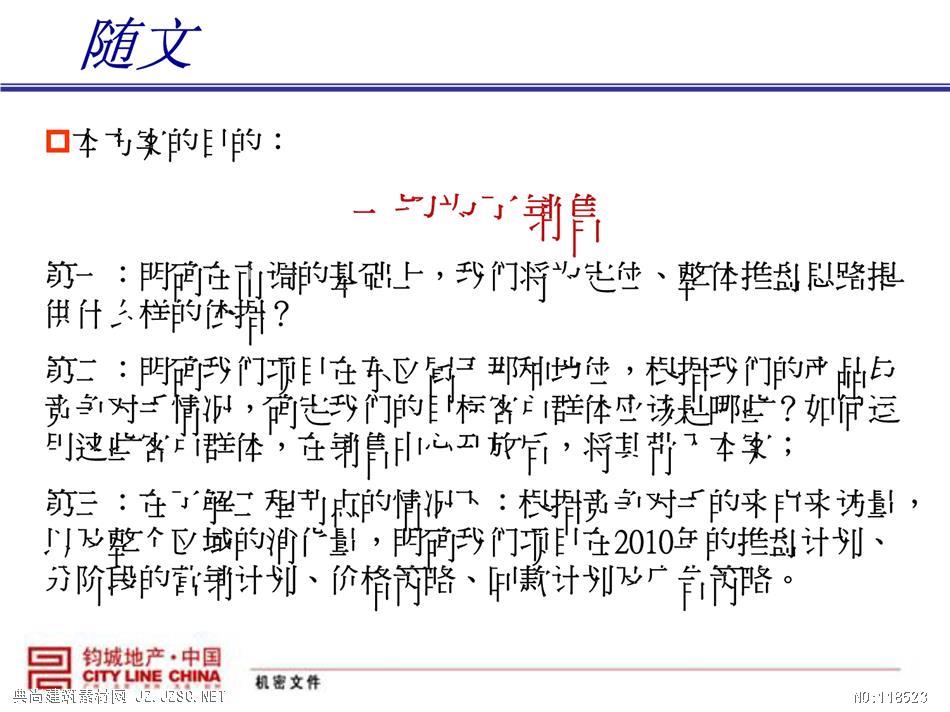 随文
本方案的目的：
一切为了销售
第一：明确在市调的基础上，我们将为定位、整体推盘思路提
供什么样的依据？
第二：明确我们项目在本区属于哪种地位，根据我们的产品与
竞争对手情况，确定我们的目标客户群体应该是哪些？如何运
到这些客户群体，在销售中心开放后，将其带了本案；
第三：在了解工程节点的情况下：根据竞争对手的来电来访量，
以及整个区域的消化量，明确我们项目在2010年的推盘计划、
分阶段的营销计划、价格策略、回款计划及广告策略。
钧城地产·中国
CITY LINE CHINA
机密文件
典尚建筑素材网 JZ.JZSC.NET
NO:118523